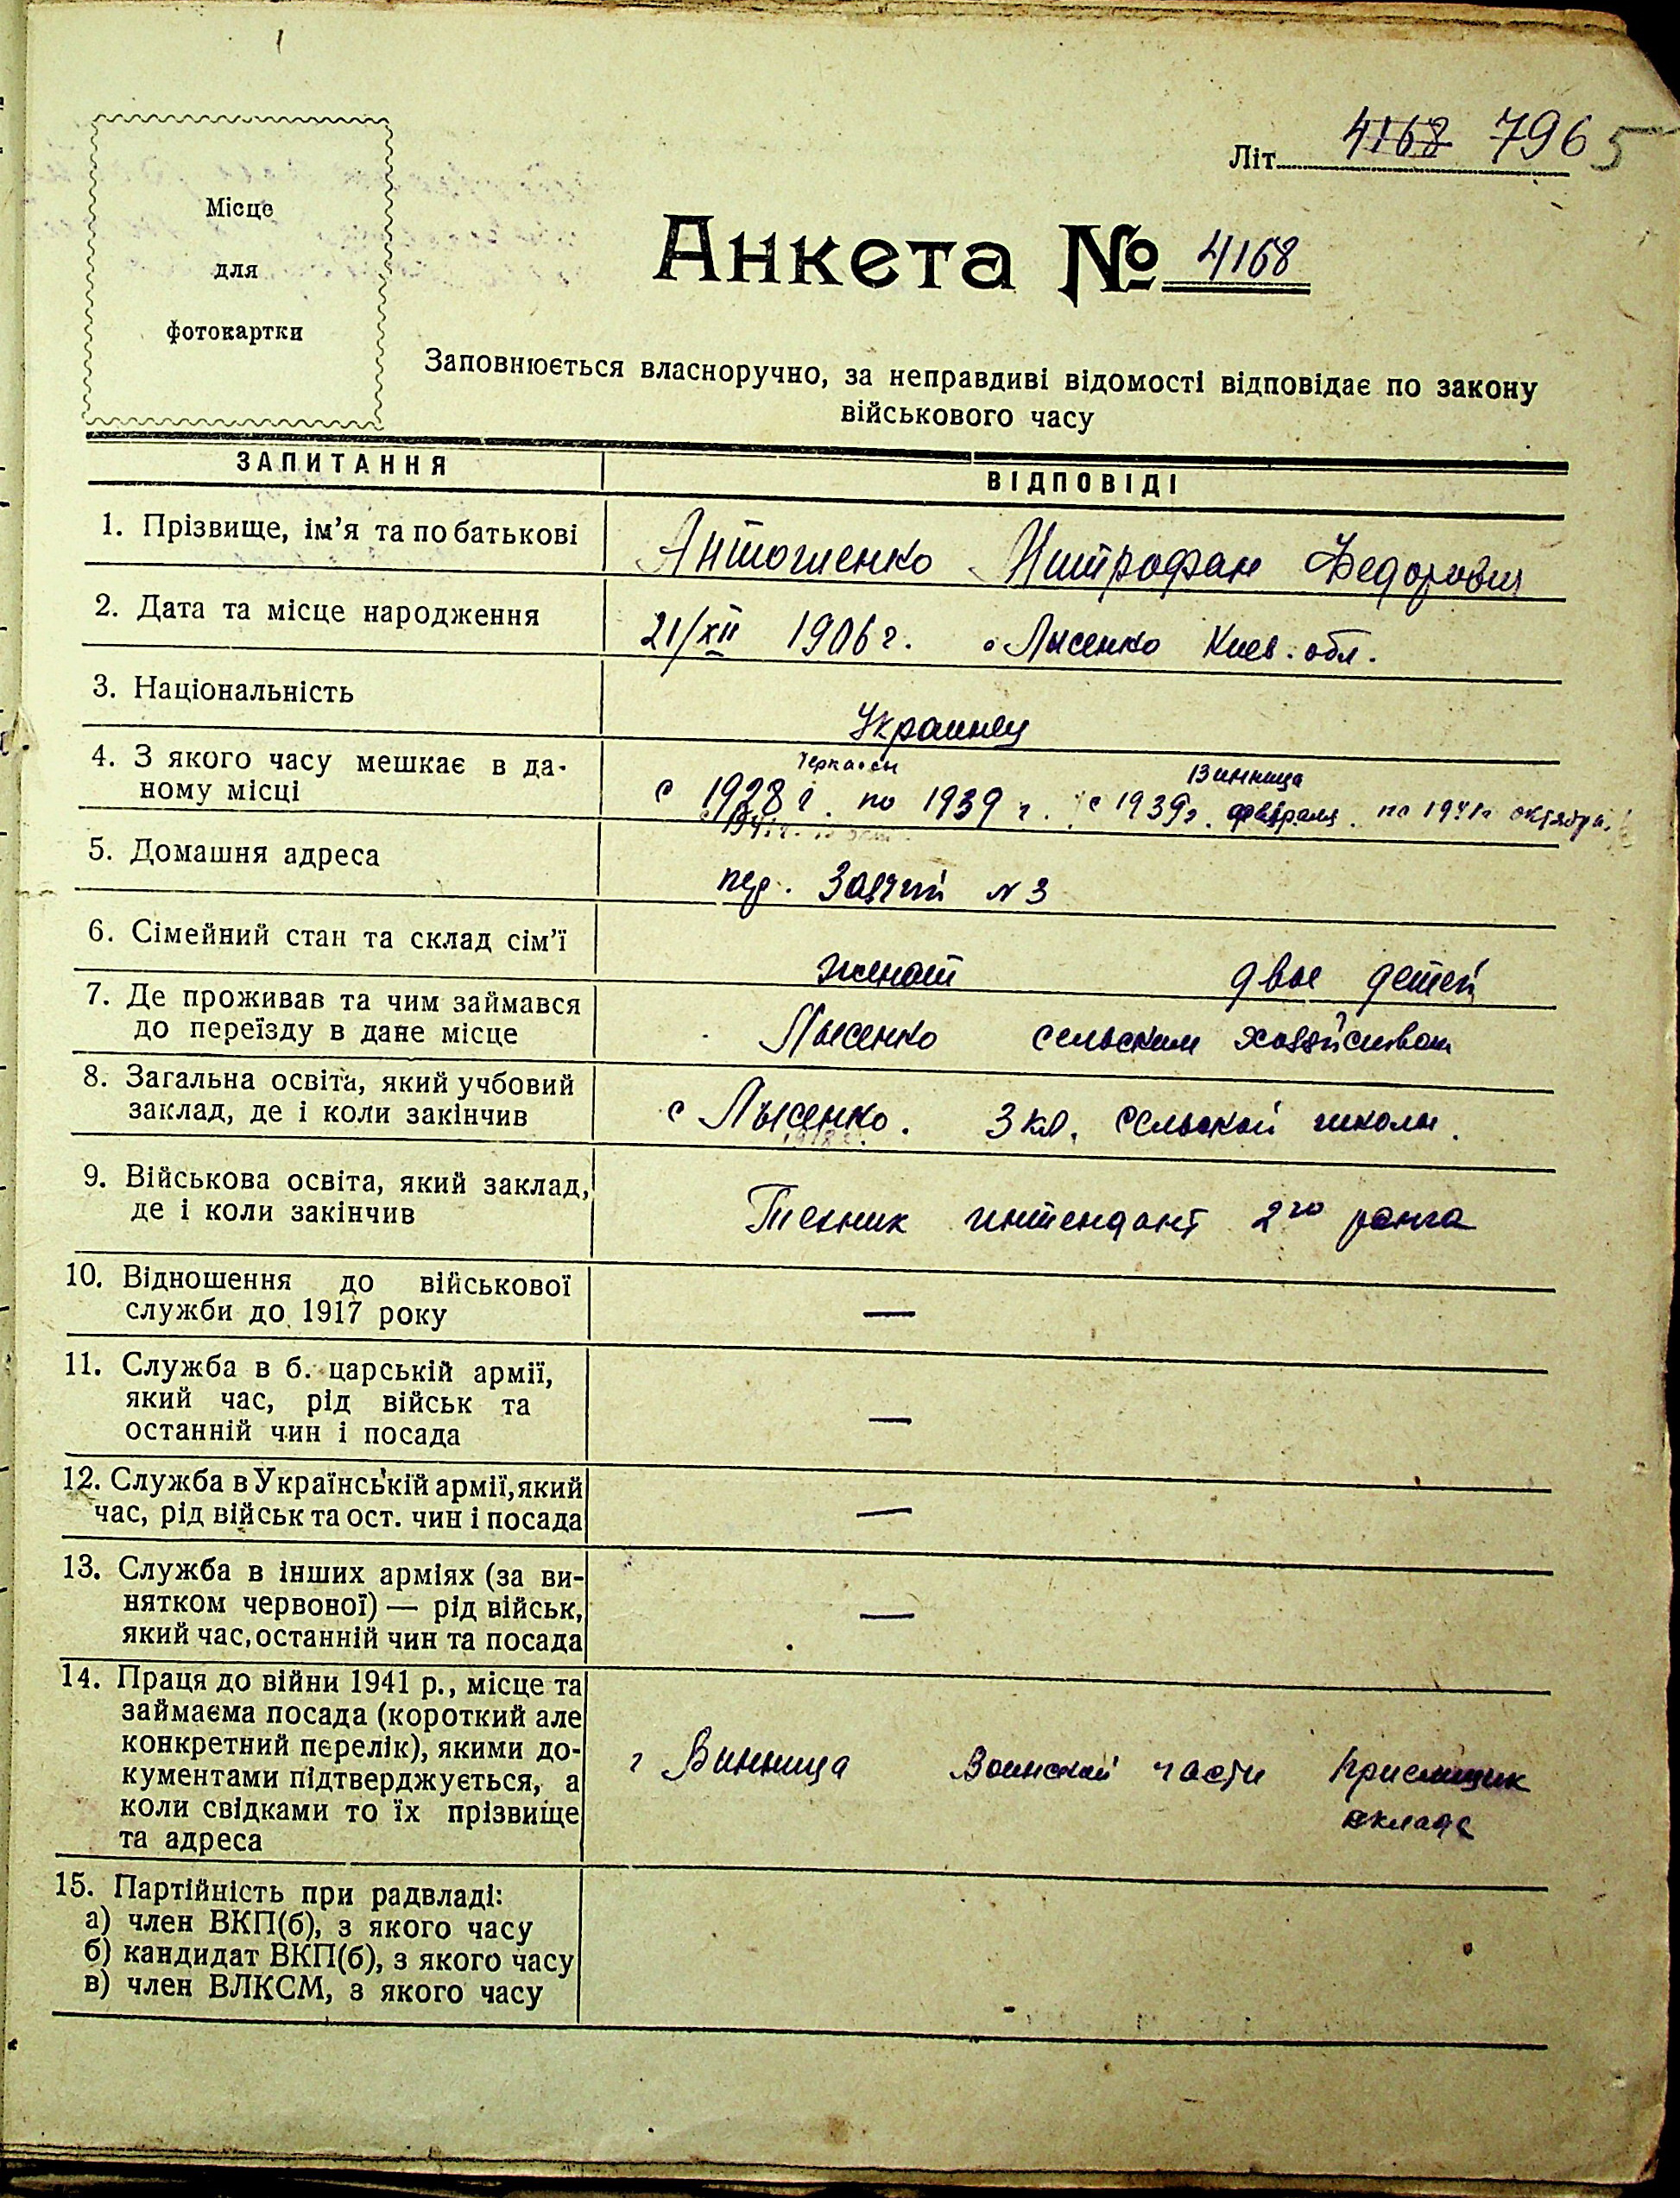 Літ. 4168 7965
Місце
для
фотокартки
Анкета № 4168
Заповнюється власноручно, за неправдиві відомості відповідає по закону
військового часу
ЗАПИТАННЯ ВІДПОВІДІ
1. Прізвище, ім'я та по батькові Антошенко Митрофан Федорович
2. Дата та місце народження 21/XII 1906 г. с Лысенко Киев. обл.
3. Національність Украинец
4. З якого часу мешкає в да-
ному місці
Черкассы Винница
с 1928 г. по 1939 г. с 1939 г. февраля. по 1941 г октября.
5. Домашня адреса пер. Заячий № 3
6. Сімейний стан та склад сім'ї женат двое детей
7. Де проживав та чим займався
до переїзду в дане місце
Лысенко сельским хозяйством
8. Загальна освіта, який учбовий
заклад, де і коли закінчив
с Лысенко. 3 кл. сельской школы.
9. Військова освіта, який заклад,
де і коли закінчив
Техник интендант 2го ранга
10. Відношення до військової
служби до 1917 року —
11. Служба в б. царській армії,
який час, рід військ та
останній чин і посада —
12. Служба в Українській армії, який
час, рід військ та ост. чин і посада —
13. Служба в інших арміях (за ви-
нятком червоної) — рід військ,
який час, останній чин та посада —
14. Праця до війни 1941 р., місце та
займаєма посада (короткий але
конкретний перелік), якими до-
кументами підтверджується, а
коли свідками то їх прізвище
та адреса
г Винница Воинской части приемщик
склада
15. Партійність при радвладі:
а) член ВКП(б), з якого часу
б) кандидат ВКП(б), з якого часу
в) член ВЛКСМ, з якого часу